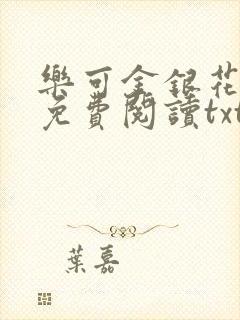 樂可金銀花
免費閱讀txt
葉嘉